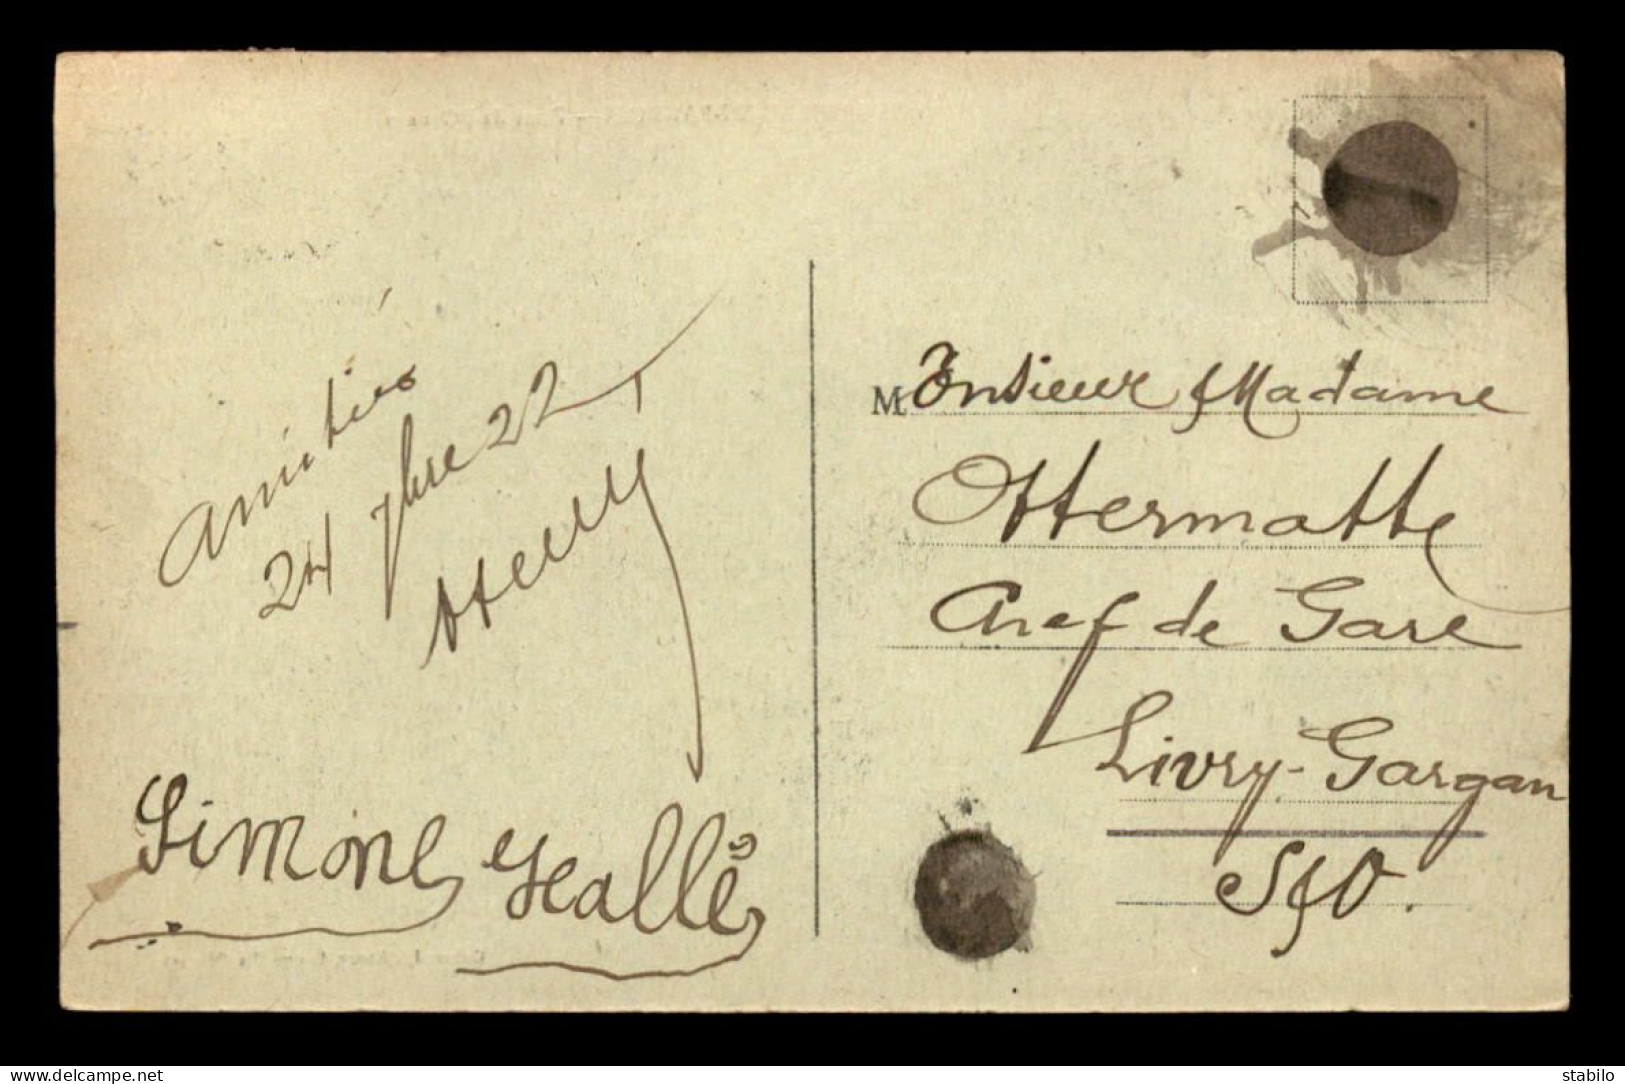 Amitiés
24 7bre 22
Henry
Simone Hallé
Monsieur & Madame
Ottermatte
Chef de Gare
Livry-Gargan
S&O.
https://www.delcampe.net
stabilo